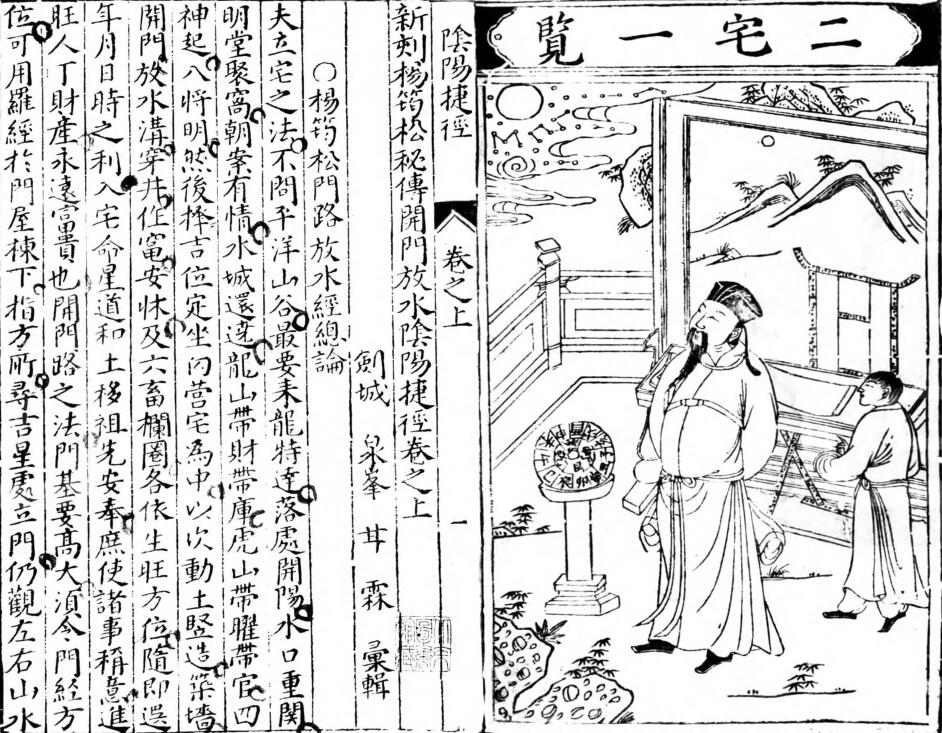 二宅一覽
陰陽捷徑
卷之上
一
新刻楊筠松秘傳開門放水陰陽捷徑卷之上
劍城 泉峯 甘 霖 彙輯
○楊筠松門路放水經總論
夫立宅之法不問平洋山谷最要来龍特達落處開陽水口重関
明堂聚窩朝案有情水城還遶龍山帶財帶庫虎山帶曜帶官四
神起八将明然後择吉位定坐向營宅為中以次動土竪造築墻
開門放水溝穿井作竈安牀及六畜欄圈各依生旺方位隨即選
年月日時之利入宅命星道和土移祖先安奉庶使諸事稱意進
旺人丁財產永遠富貴也開門路之法門基要髙大須合門經方
位可用羅經於門屋棟下指方所尋吉星處立門仍觀左右山水